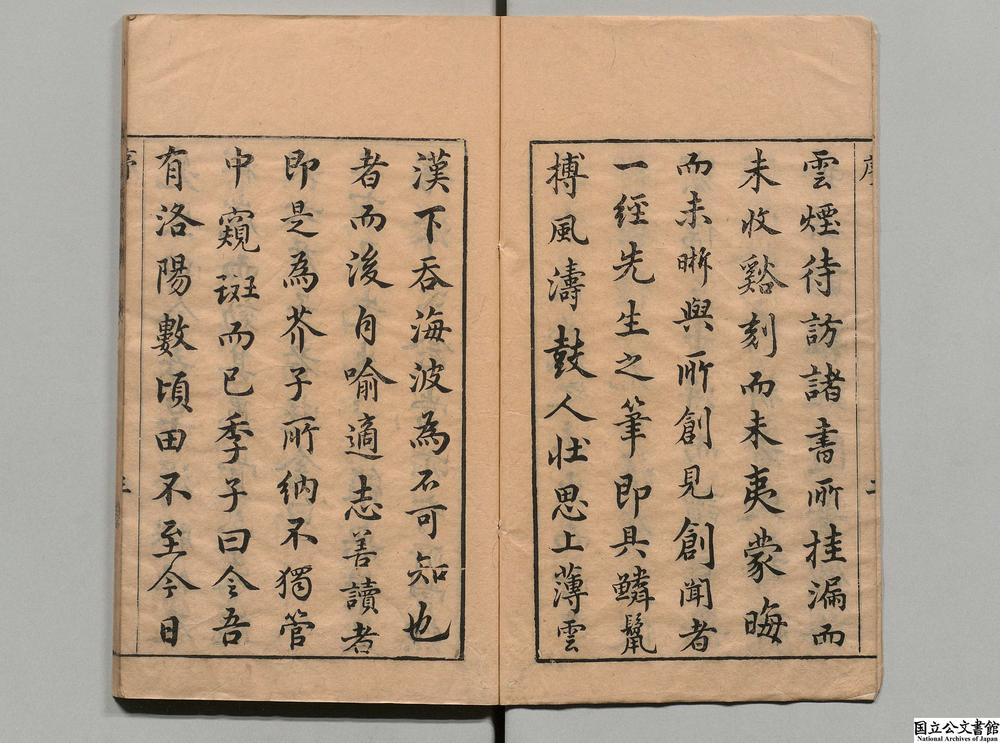 雲煙待訪諸書所挂漏而
未收谿刻而未夷蒙晦
而未晰與所創見創聞者
一經先生之筆即具鱗鬣
搏風濤鼓人壯思上薄雲
漢下吞海波為不可知也
者而後自喻適志善讀者
即是為芥子所納不獨管
中窺斑而已季子曰令吾
有洛陽數頃田不至今日
国立公文書館
National Archives of Japan